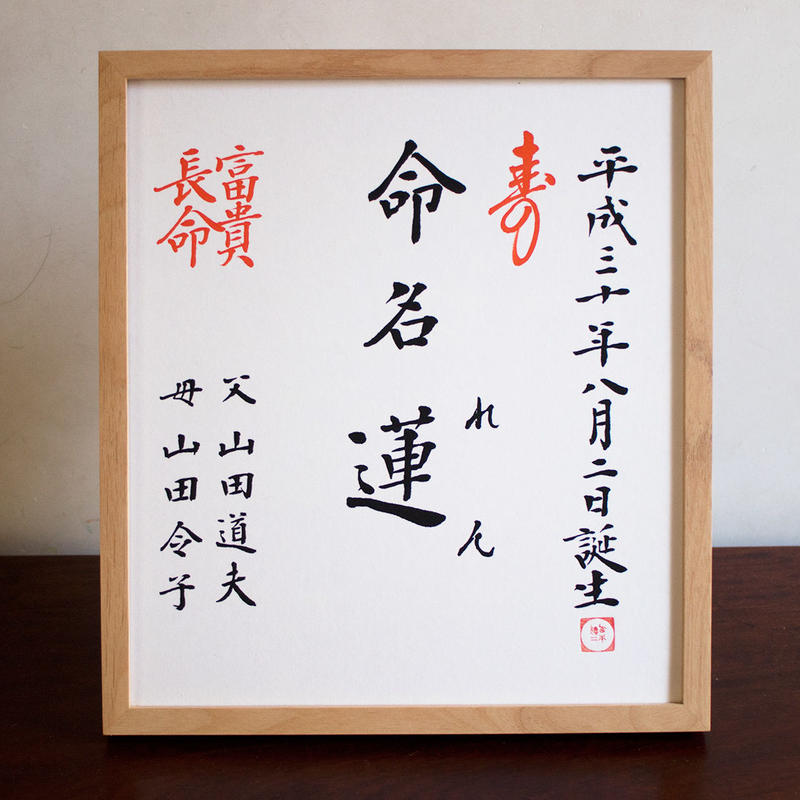 平成三十年八月二日誕生
寿
れん
命名蓮
富貴
長命
父山田道夫
母山田令子